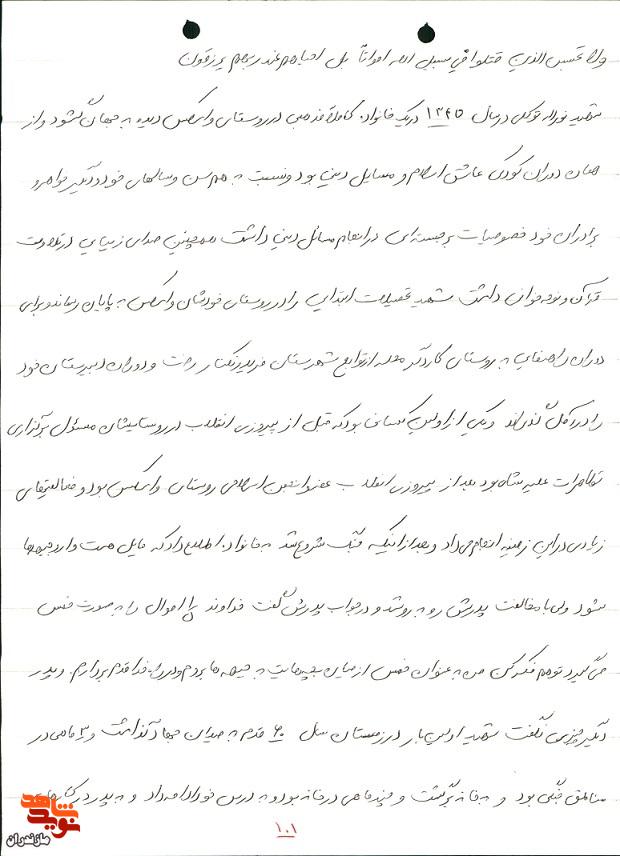 ولا تحسبن الذین قتلوا فی سبیل الله امواتاً بل احیاء هم عند ربهم یرزقون
شهید نوراله توکلی در سال ۱۳۴۵ در یک خانواده کاملاً مذهبی در روستای واسکس دیده به جهان گشود و از
همان دوران کودکی عاشق اسلام و مسایل دینی بود و نسبت به هم سن و سالهای خود و دیگر خواهر و
برادران خود خصوصیات برجسته‌ای در انجام مسائل دینی داشت همچنین صدای زیبایی در تلاوت
قرآن و نوحه خوانی داشت شهید تحصیلات ابتدایی را در روستای خودشان واسکس به پایان رساند و برای
دوران راهنمایی به روستای کاردگر محله از توابع شهرستان فریدونکنار رفت و دوران دبیرستان خود
را در آمل گذراند و یکی از اولین کسانی بود که قبل از پیروزی انقلاب در روستایشان مسئول برگزاری
تظاهرات علیه شاه بود بعد از پیروزی انقلاب عضو انجمن اسلامی روستای واسکس بود و فعالیتهای
زیادی در این زمینه انجام می داد و بعد از اینکه جنگ شروع شد به خانواده اطلاع داد که مایل است وارد جبهه‌ها
شود ولی با مخالفت پدرش روبه رو شد و در جواب پدرش گفت خداوند ⅕ اموال را به صورت خمس
می گیرد تو هم فکر کن من به عنوان خمس از میان بچه‌هایت به جبهه ها بروم و در راه خدا قدم بردارم و پدر
دیگر چیزی نگفت شهید اولین بار در زمستان سال ۶۰ قدم به میدان جهاد گذاشت و ۳ ماهی در
مناطق جنگی بود و به خانه برگشت و چند ماهی در خانه بود و به درس خود ادامه داد و به پدر در کارهای
۱۰۱
نوید شاهد
مازندران